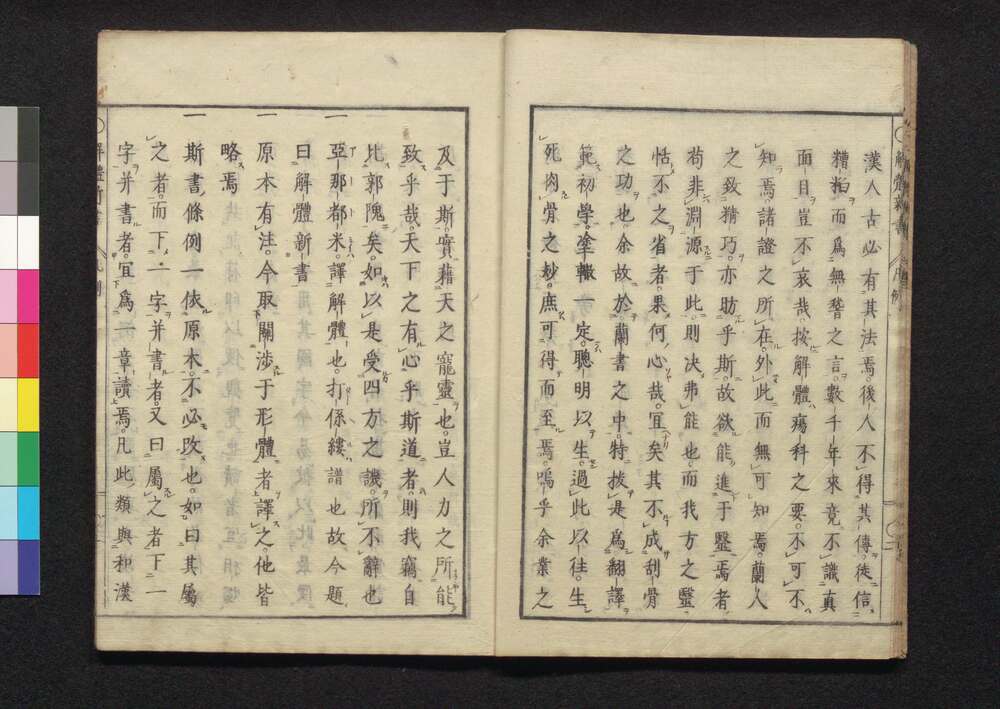 漢人古必有其法焉。後人不得其傳。徒信
糟粕而爲無稽之言。數千年來竟不識眞
面目豈不哀哉。按解體瘍科之要。不可不
知焉。諸證之所在。外此而無可知焉。蘭人
之致精巧。亦昉乎斯。故欲能進于毉焉者。
苟非淵源于此。則决弗能也。而我方之毉
恬不之省者。果何心哉。宜矣其不成刮骨
之功也。余故於蘭書之中。特拔是爲翻譯。
範初學。塗轍一定。聰明以生。過此以往。生
死肉骨之妙。庶可得而至焉。嗚乎余業之
及于斯。實藉天之寵靈也。豈人力之所能
致乎哉。天下之有心乎斯道者。則我竊自
比郭隗矣。如以是受四方之譏。所不辭也
一亞那都米。譯解體也。打係縷譜也故今題
曰解體新書
一原本有注。今取關渉于形體者譯之。他皆
略焉
一斯書條例一依原本。不必改也。如曰其屬
之者。而下一字并書者。又曰屬之者下一
字并書者。宜爲一章讀焉。凡此類與和漢